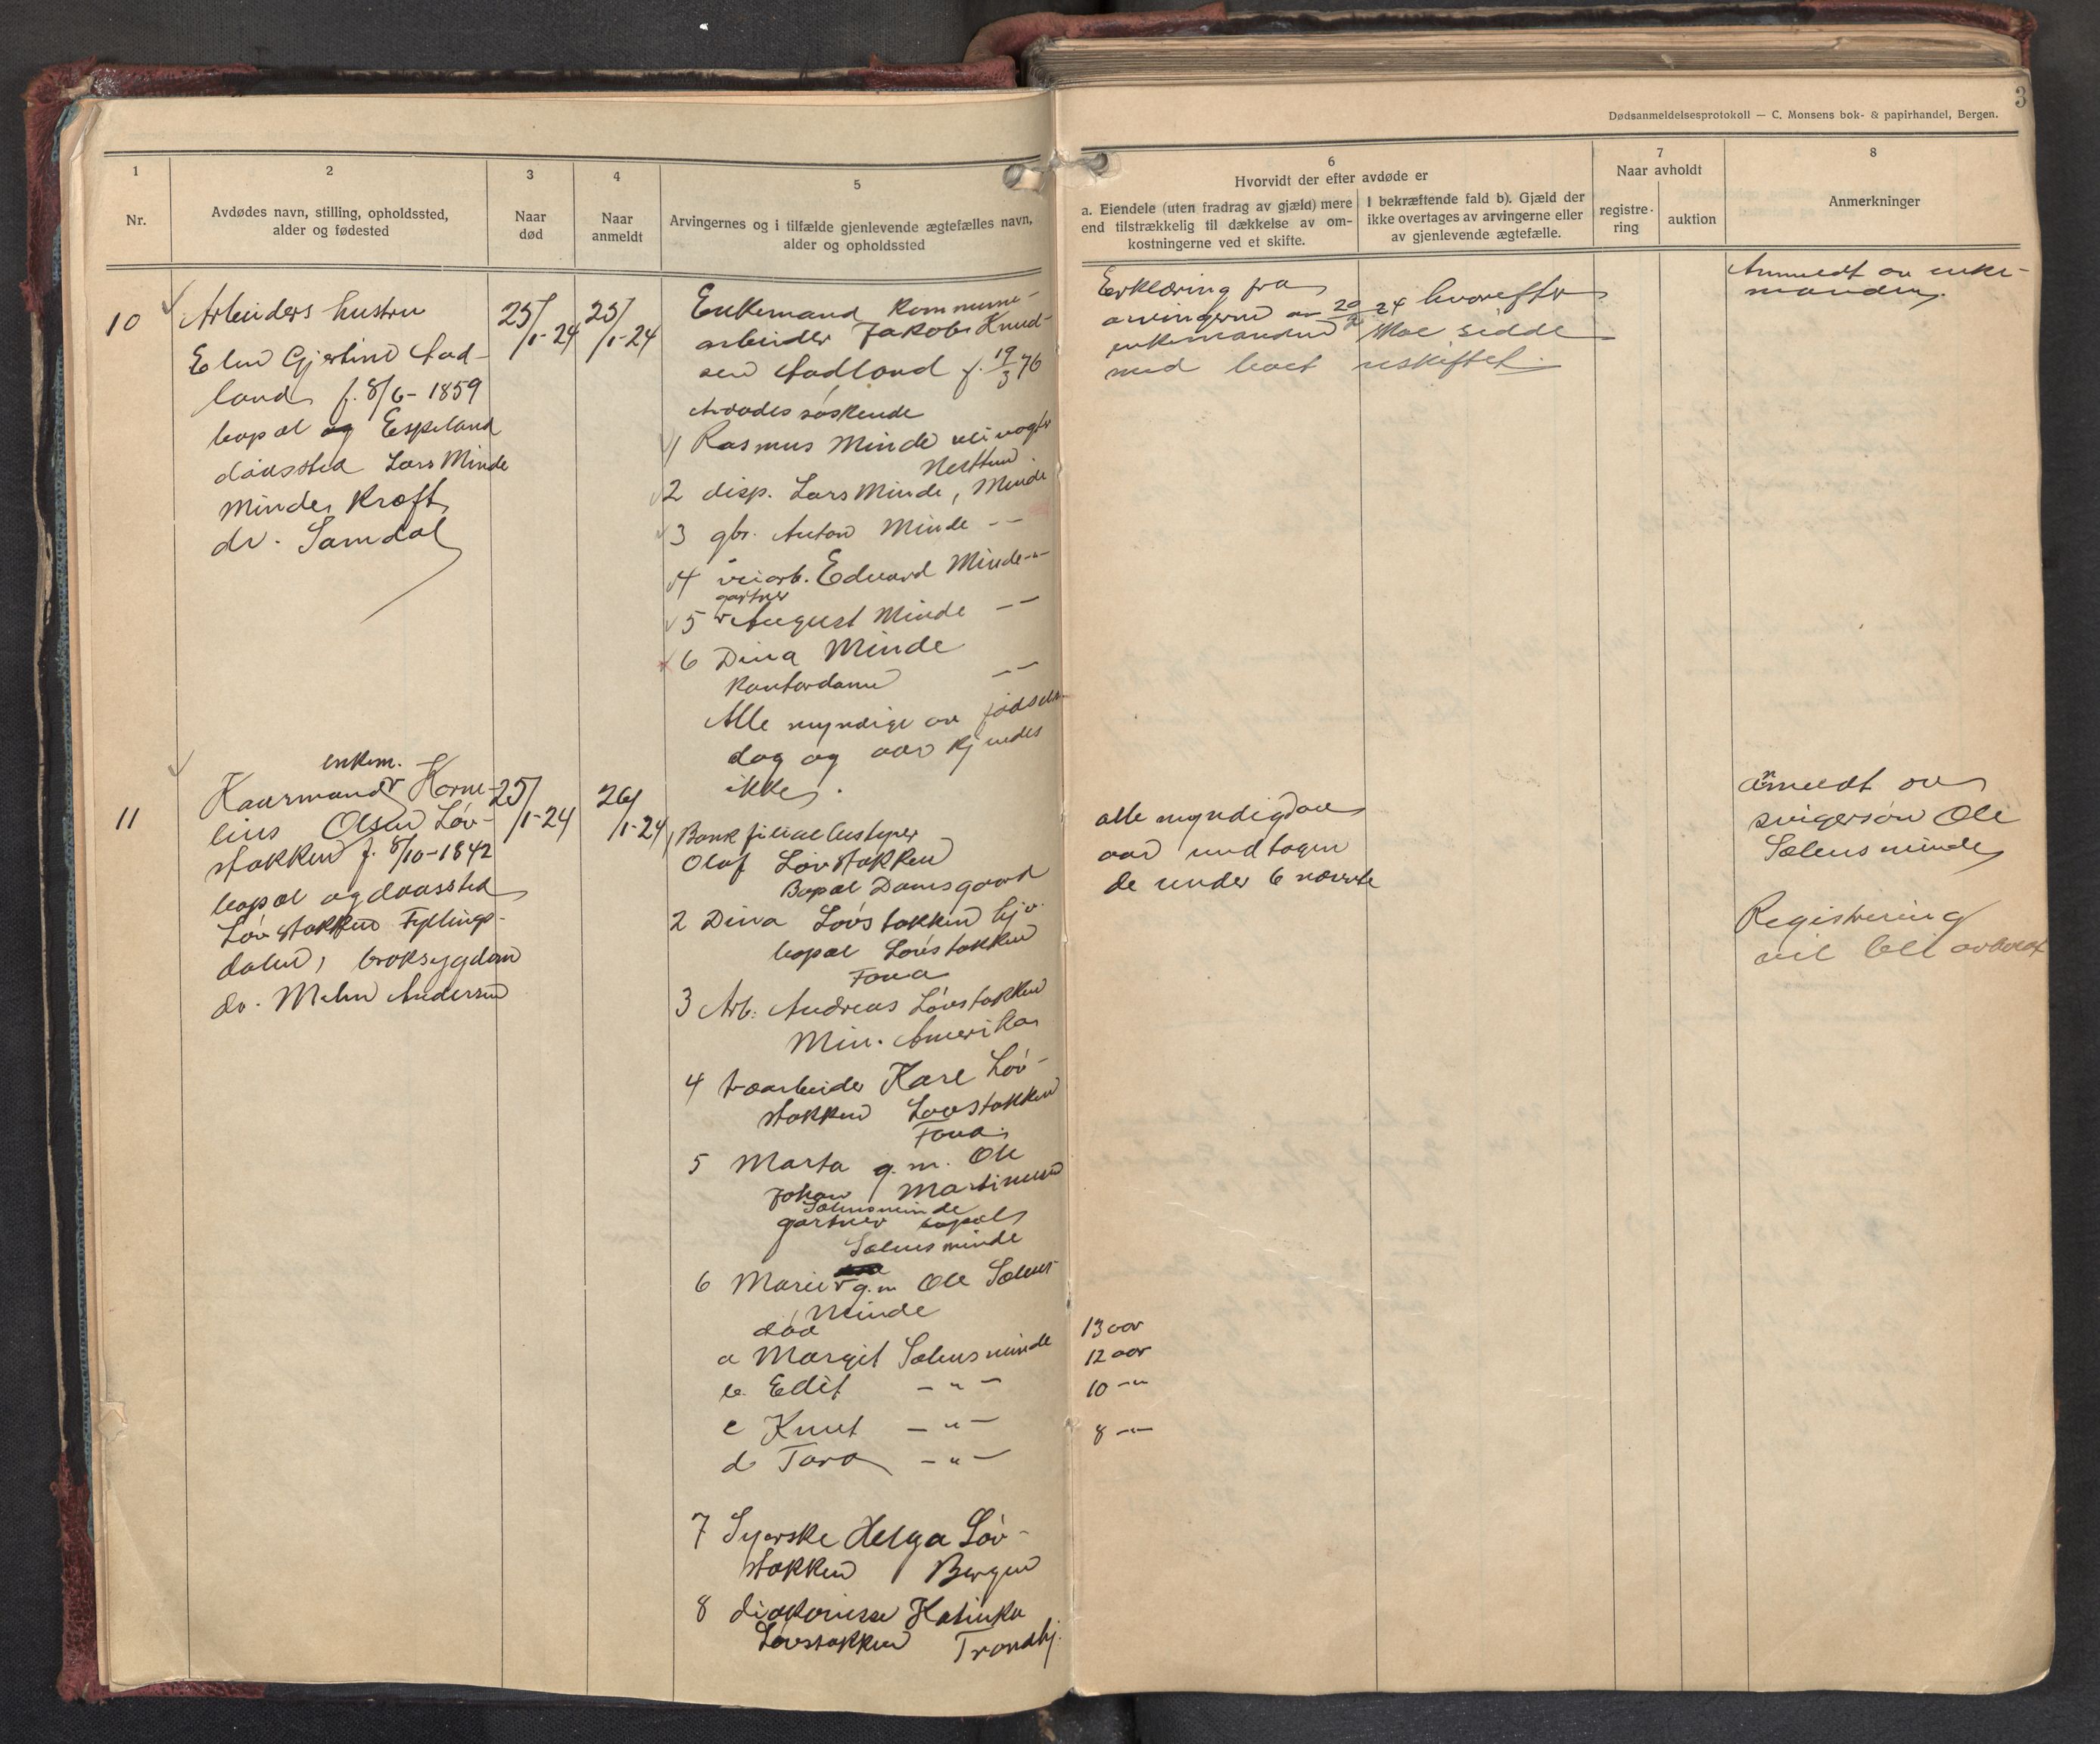 3
Dødsanmeldelsesprotokoll — C. Monsens bok- & papirhandel, Bergen.
1
Nr.
2
Avdødes navn, stilling, opholdssted,
alder og fødested
3
Naar
død
4
Naar
anmeldt
5
Arvingernes og i tilfælde gjenlevende ægtefælles navn,
alder og opholdssted
6
Hvorvidt der efter avdøde er
a. Eiendele (uten fradrag av gjæld) mere
end tilstrækkelig til dækkelse av om-
kostningerne ved et skifte.
I bekræftende fald b). Gjæld der
ikke overtages av arvingerne eller
av gjenlevende ægtefælle.
7
Naar avholdt
registre-
ring
auktion
8
Anmerkninger
10
Arbeiders hustru
Elen Gjertine Aad-
land f. 8/6 - 1859
bopæl og Espeland
dødssted Lars Minde
Minde, Kræft,
dr. Samdal
25/
1-24
25/
1-24
Enkemand kommune-
arbeider Jakob Knud-
sen Aadland f. 19/3 76
Avdødes søskende
1 Rasmus Minde veivogter
Nesttun
2 disp. Lars Minde, Minde
3 gbr. Anton Minde - -
4 veiarb. Edvard Minde -"-
gartner
5 August Minde - -
6 Dina Minde
Kontordame - -
Alle myndige og fødsels-
dag og aar kjendes
ikke.
Erklæring fra
arvingerne av 20/2 24 hvorefter
enkemanden kan sidde
med boet uskiftet.
Anmeldt av enke-
manden.
11
enkem.
Kaarmand Korne-
lius Olsen Løv-
stakken f. 8/10-1842
bopæl og dødssted
Løvstakken Fyllings-
dalen, broksygdom
dr. Mehn Andersen
25/
1-24
26/
1-24
1 Bankfilialbestyrer
Olaf Løvstakken
Bopæl Damsgaard
2 Dina Løvstakken hjv.
bopæl Løvstakken
Fana
3 Arb. Andreas Løvstakken
Min. Amerika
4 træarbeider Karl Løv-
stakken Løvstakken
Fana.
5 Marta g. m. Ole
Johan Martinusen
Sælensminde
gartner bopæl
Sælensminde
6 Marie g.m Ole Sælens-
minde
død
a Margit Sælensminde
b. Edit - " -
c Knut - " -
d Tora - " -
7 Syerske Helga Løv-
stakken Bergen
8 diakonisse Katinka
Løvstakken Trondhj.
alle myndige
aar undtagen
de under 6 nævnte
13 aar
12 aar
10 -"-
8 -"-
anmeldt av
svigersøn Ole
Sælensminde
Registrering
vil bli avholdt